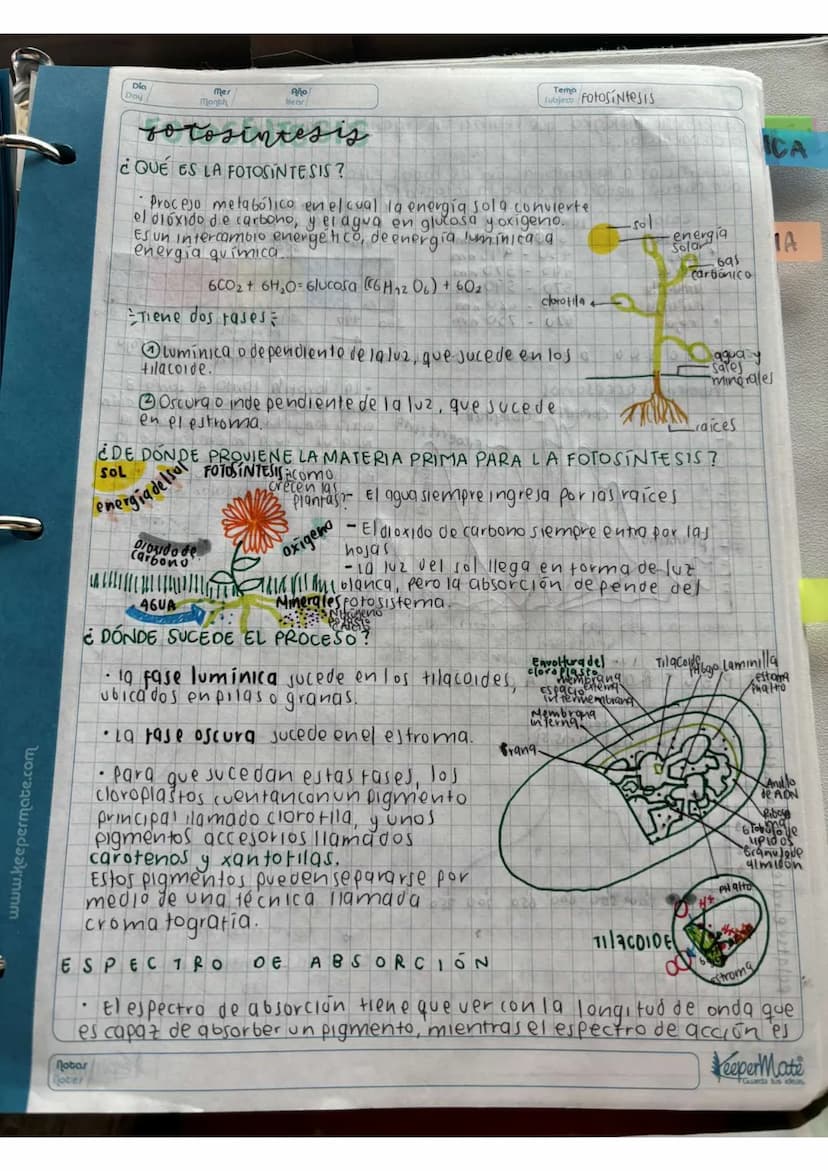 Día
Day
Mes
Month
Año
Year
Tema
Subject
FOTOSÍNTESIS
ICA
IA
FOTOSÍNTESIS
fotosíntesis
¿QUÉ ES LA FOTOSÍNTESIS?
· Proceso metabólico en el cual la energía sola convierte
el dióxido de carbono, y el agua en glucosa y oxígeno.
Es un intercambio energético, de energía lumínica a
energía química.
6CO2 + 6H2O = Glucosa (C6H12O6) + 6O2
Tiene dos fases:
① Lumínica o dependiente de la luz, que sucede en los
tilacoide.
② Oscura o independiente de la luz, que sucede
en el estroma.
sol
energía
solar
gas
carbónico
clorofila
agua y
sales
minerales
raíces
¿DE DÓNDE PROVIENE LA MATERIA PRIMA PARA LA FOTOSÍNTESIS?
SOL
energía del sol
FOTOSÍNTESIS: ¿como
crecen las
plantas?
Dióxido de
carbono
oxígeno
AGUA
Minerales
Nitrógeno
- El agua siempre ingresa por las raíces
- El dioxido de carbono siempre entra por las
hojas
- La luz del sol llega en forma de luz
blanca, pero la absorción depende del
fotosistema.
¿DÓNDE SUCEDE EL PROCESO?
· La fase lumínica sucede en los tilacoides,
ubicados en pilas o granas.
· La fase oscura sucede en el estroma.
· Para que sucedan estas fases, los
cloroplastos cuentan con un pigmento
principal llamado clorofila, y unos
pigmentos accesorios llamados
carotenos y xantofilas.
Estos pigmentos pueden separarse por
medio de una técnica llamada
cromatografía.
Envoltura del
cloroplasto
membrana
externa
espacio
intermembrana
Membrana
interna
Grana
Tilacoide
Laminilla
estroma
Anillo
de ADN
Glóbulo de
lípidos
Gránulo de
almidón
TILACOIDE
H+
estroma
ESPECTRO DE ABSORCIÓN
· El espectro de absorción tiene que ver con la longitud de onda que
es capaz de absorber un pigmento, mientras el espectro de acción es
Notas
Notes
KeeperMate
Guarda tus ideas
www.keepermate.com